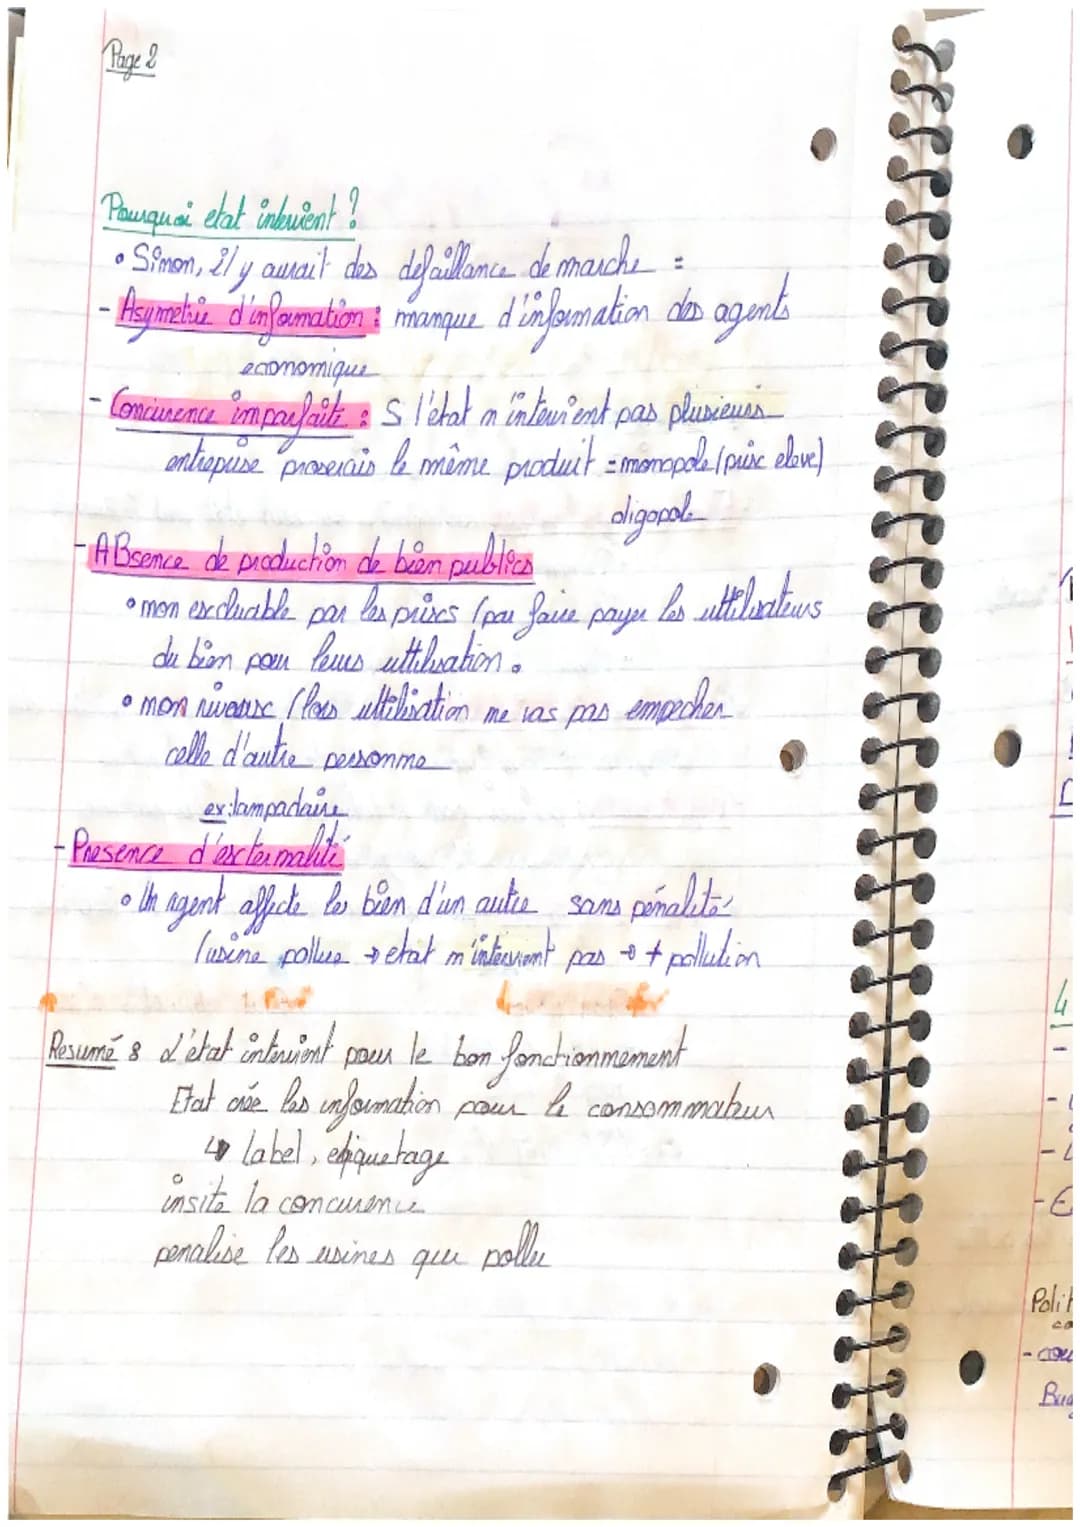 Page 2
Pourquoi etat intervient ?
• Sinon, il y aurait des defaillance de marche =
- Asymetrie d'information : manque d'information des agents
economique
- Concurence imparfaite : S l'état n'intervient pas plusieurs
entreprise proserais le même produit = monopole (prix eleve)
oligopole
- ABsence de production de bien publics
• non excluable par les prixs (par faire payer les uttilisateurs
du bien pour leurs uttilisation.
• non rivaux (leurs uttilisation ne vas pas empecher
celle d'autre personne
ex: lampadaire
- Presence d'externalité
• Un agent affecte les bien d'un autre sans pénalité
(usine pollue → etat n'intervient pas → + pollution
Resumé : L'état intervient pour le bon fonctionnement
Etat crée les information pour le consommateur
↳ label, etiquetage
insite la concurence
penalise les usines que pollue
Polit
- cou